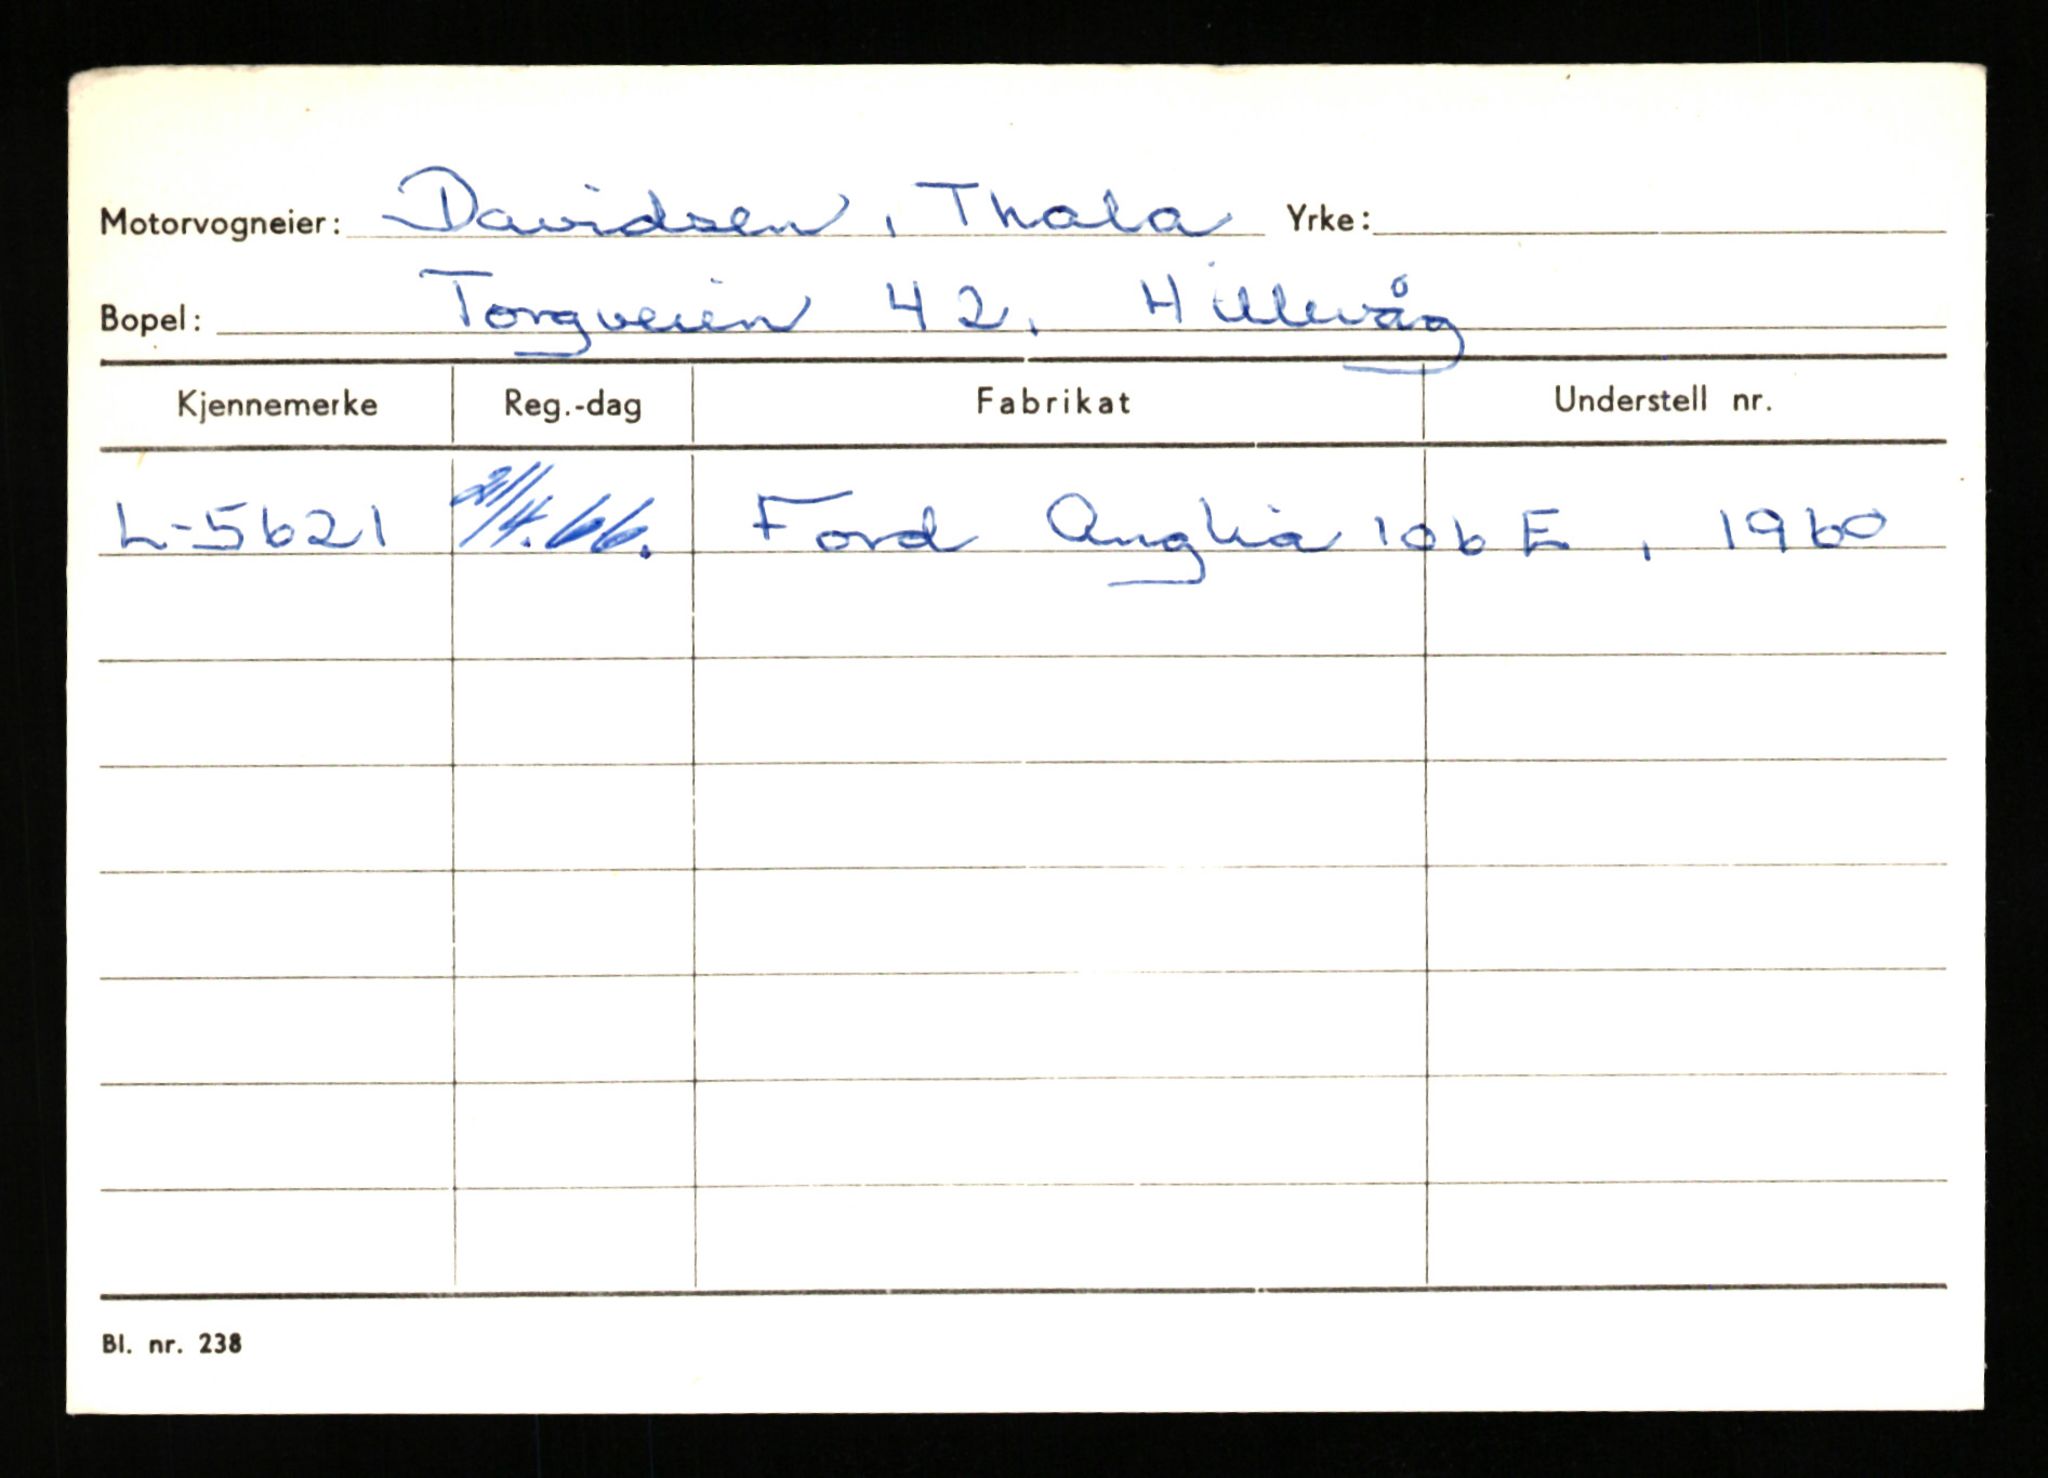 Motorvogneier: Davidsen, Thala Yrke:
Bopel: Torgveien 42. Hillevåg
Kjennemerke Reg.-dag Fabrikat Understell nr.
L-5621 21/4.66. Ford Anglia 106 E, 1960
Bl. nr. 238